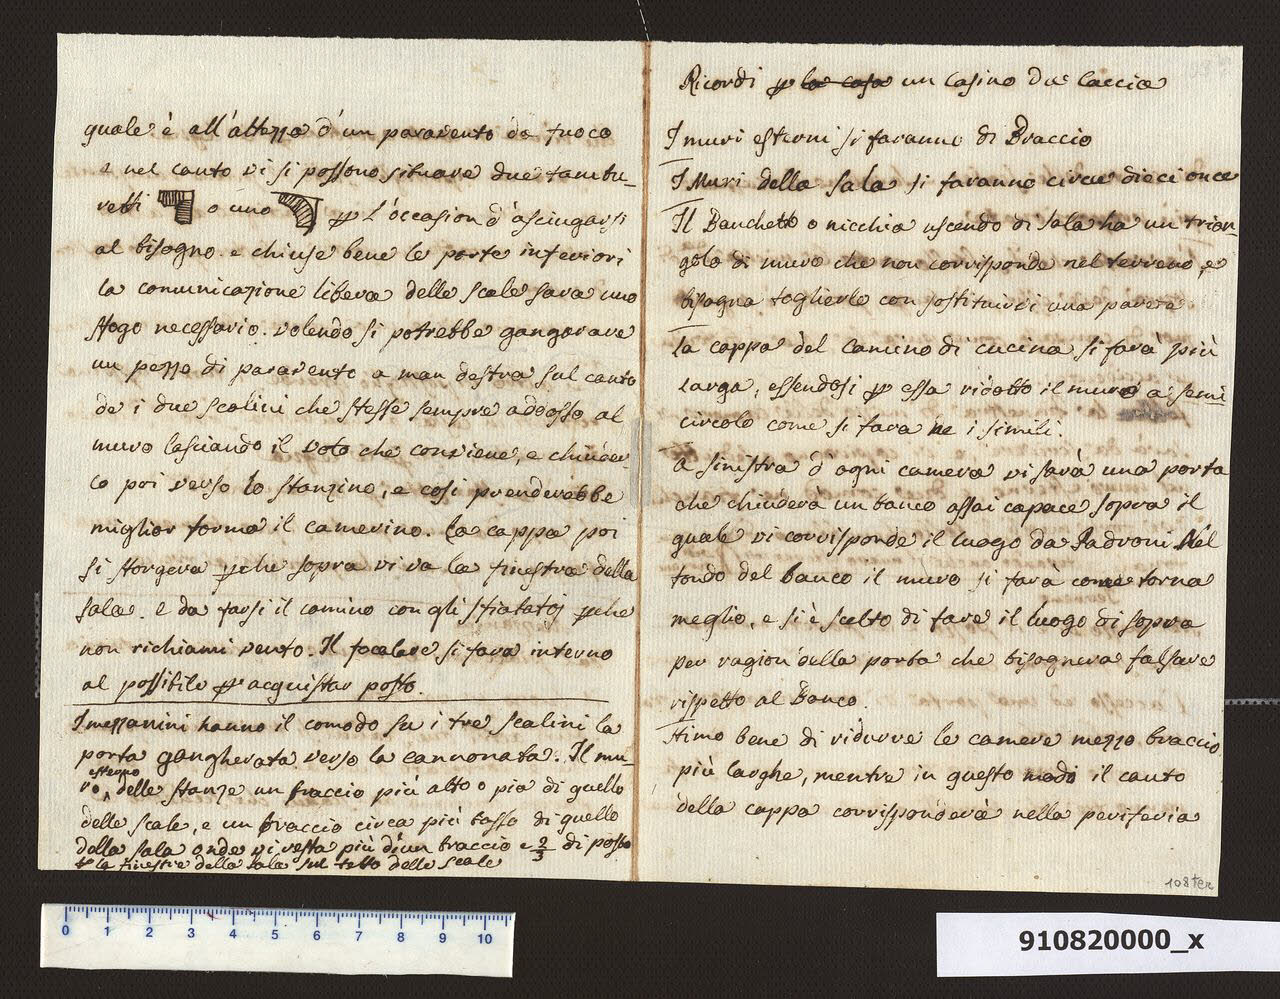 quale è all'altezza d'un paravento da fuoco
e nel canto vi si possono situare due tambu-
retti o uno p l'occasion d'asciugarsi
al bisogno. e chiuse bene le porte inferiori
la comunicazione libera delle scale sara uno
sfogo necessario. volendo si potrebbe gangarare
un pezzo di paravento a man destra sul canto
de i due scalini che stesse sempre addosso al
muro lasciando il voto che conviene, e chiuder-
lo poi verso lo stanzino, e così prenderebbe
miglior forma il camerino. La cappa poi
si storgera pche sopra vi va la finestra della
sala. e da farsi il camino con gli sfiatatoj pche
non richiami vento. Il focolare si fara interno
al possibile p acquistar posto.
I mezzanini hanno il comodo su i tre scalini la
porta gangherata verso la cannonata. Il mu-
esterno
ro delle stanze un braccio più alto o più di quello
delle scale, e un braccio circa più basso di quello
della sala onde vi resta più d'un braccio e 2/3 di posto
p la finestre della sala sul tetto delle scale
Ricordi p la casa un Casino da Caccia
I muri esterni si faranno di Braccio
I Muri della Sala si faranno circa dieci once
Il Banchetto o nicchia uscendo di sala ha un trian-
golo di muro che non corrisponde nel terreno, e
bisogna toglierlo con sostituirvi una parete
La cappa del Camino di cucina si farà più
larga, essendosi p essa ridotto il muro a semi
circolo come si fara ne i simili.
A sinistra d'ogni camera vi sarà una porta
che chiuderà un banco assai capace sopra il
quale vi corrisponde il luogo da Padroni. Nel
fondo del banco il muro si farà come torna
meglio, e si è scelto di fare il luogo di sopra
per ragion della porta che bisognera falsare
rispetto al Banco.
Stimo bene di ridurre le camere mezzo braccio
più larghe, mentre in questo modo il canto
della cappa corrisponderà nella periferia
108 ter
0 1 2 3 4 5 6 7 8 9 10
910820000_x